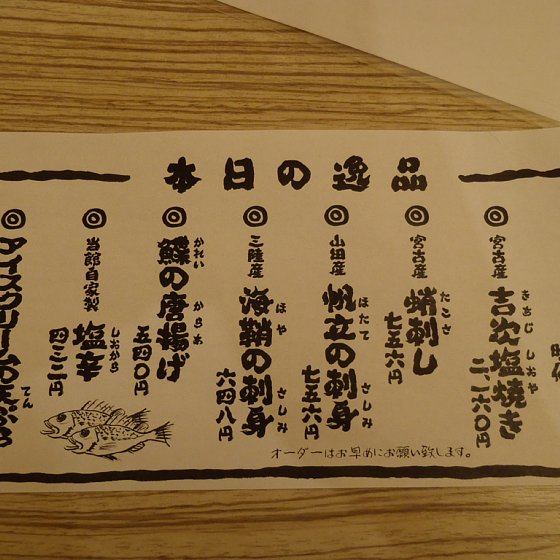 本日の逸品
宮古産
吉次塩焼き
きちじしおや
二、一六〇円
宮古産
蛸刺し
たこさ
七五六円
山田産
帆立の刺身
ほたてさしみ
七五六円
三陸産
海鞘の刺身
ほやさしみ
六四八円
鰈の唐揚げ
かれいからあ
五四〇円
当館自家製
塩辛
しおから
四三二円
アイスクリームの天ぷら
てん
オーダーはお早めにお願い致します。